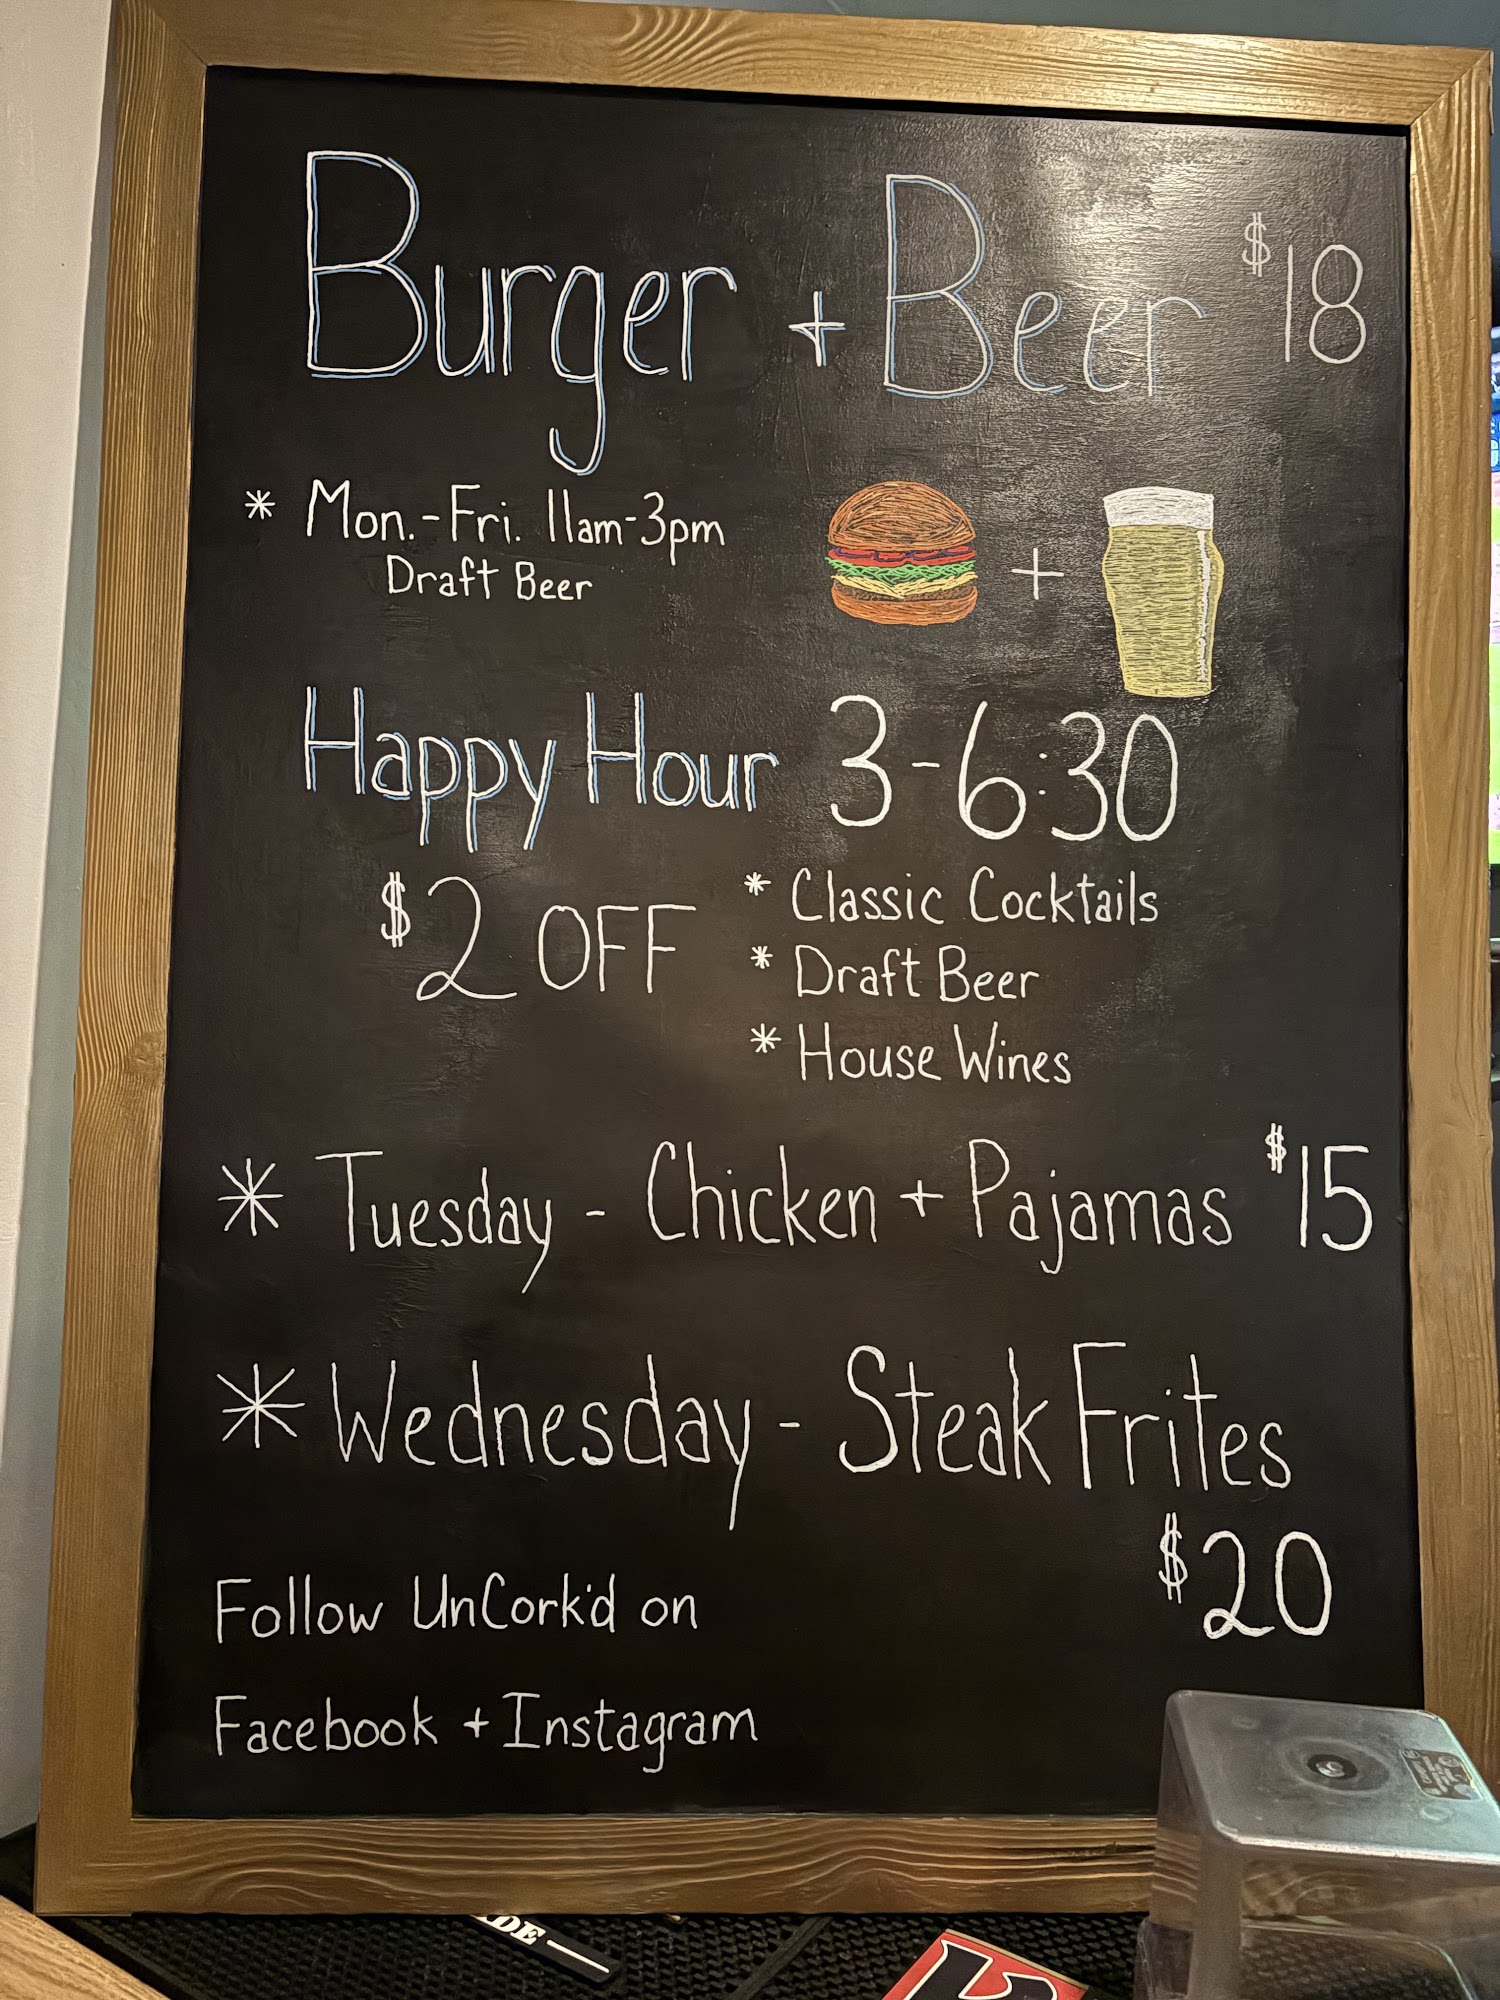 Burger + Beer $18
* Mon.-Fri. 11am-3pm
Draft Beer
+
Happy Hour 3-6:30
$2 OFF
* Classic Cocktails
* Draft Beer
* House Wines
* Tuesday - Chicken + Pajamas $15
* Wednesday - Steak Frites
$20
Follow UnCork'd on
Facebook + Instagram
DE